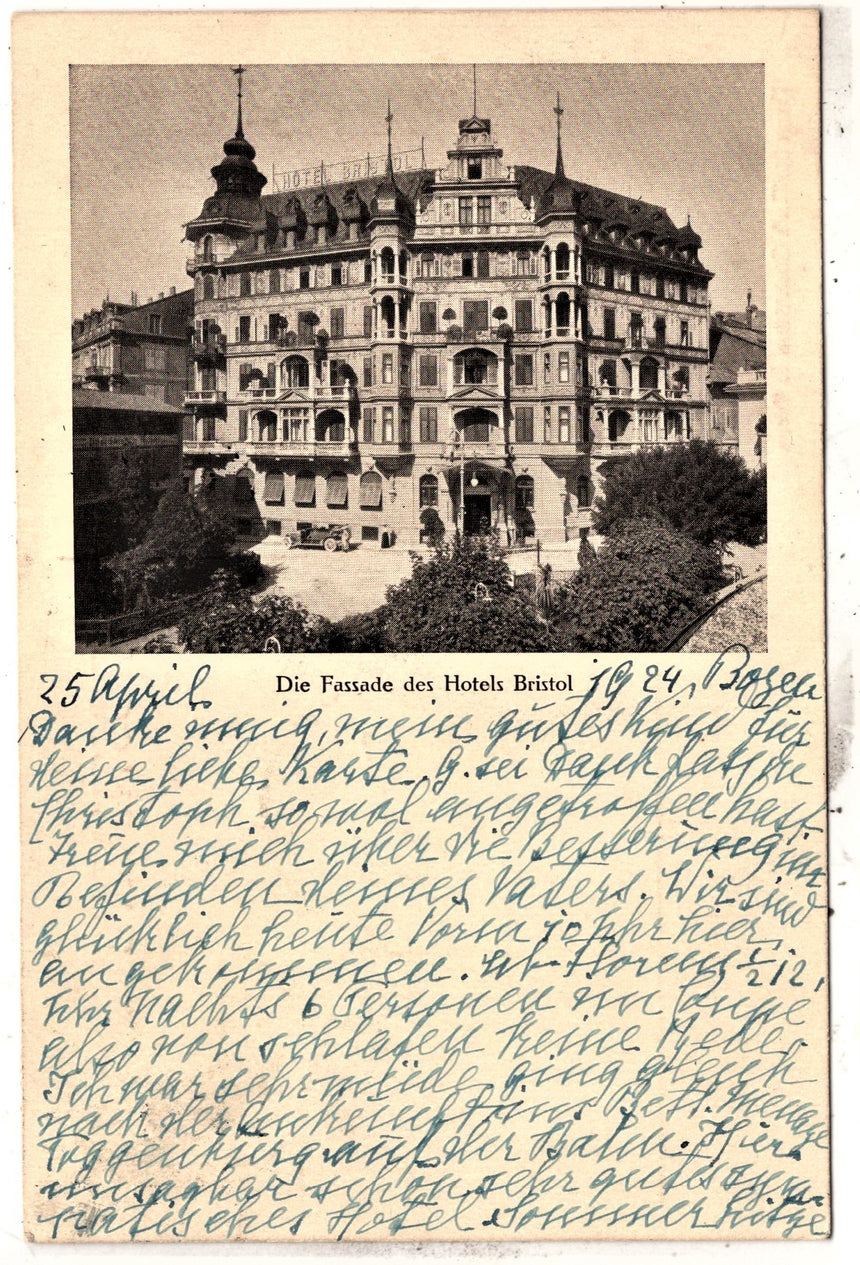 HOTEL BRISTOL
Die Fassade des Hotels Bristol
25 April 1924, Bozen
Danke innig, mein gutes Kind für
deine liebe Karte. G. sei Dank dass du
Christoph so wol angetroffen hast
Freue mich über die Besserung im
Befinden deines Vaters. Wir sind
glücklich heute Vorm 10 Uhr hier
angekommen. ab Florenz ½ 12,
Uhr Nachts 6 Personen im Coupe
also von schlafen keine Rede.
Ich war sehr müde, ging gleich
nach der Ankunft ins Bett. Menage
Toggenburg auf der Bahn. Hier
unsagbar schön, sehr gutes sym-
patisches Hotel. Sommerhitze